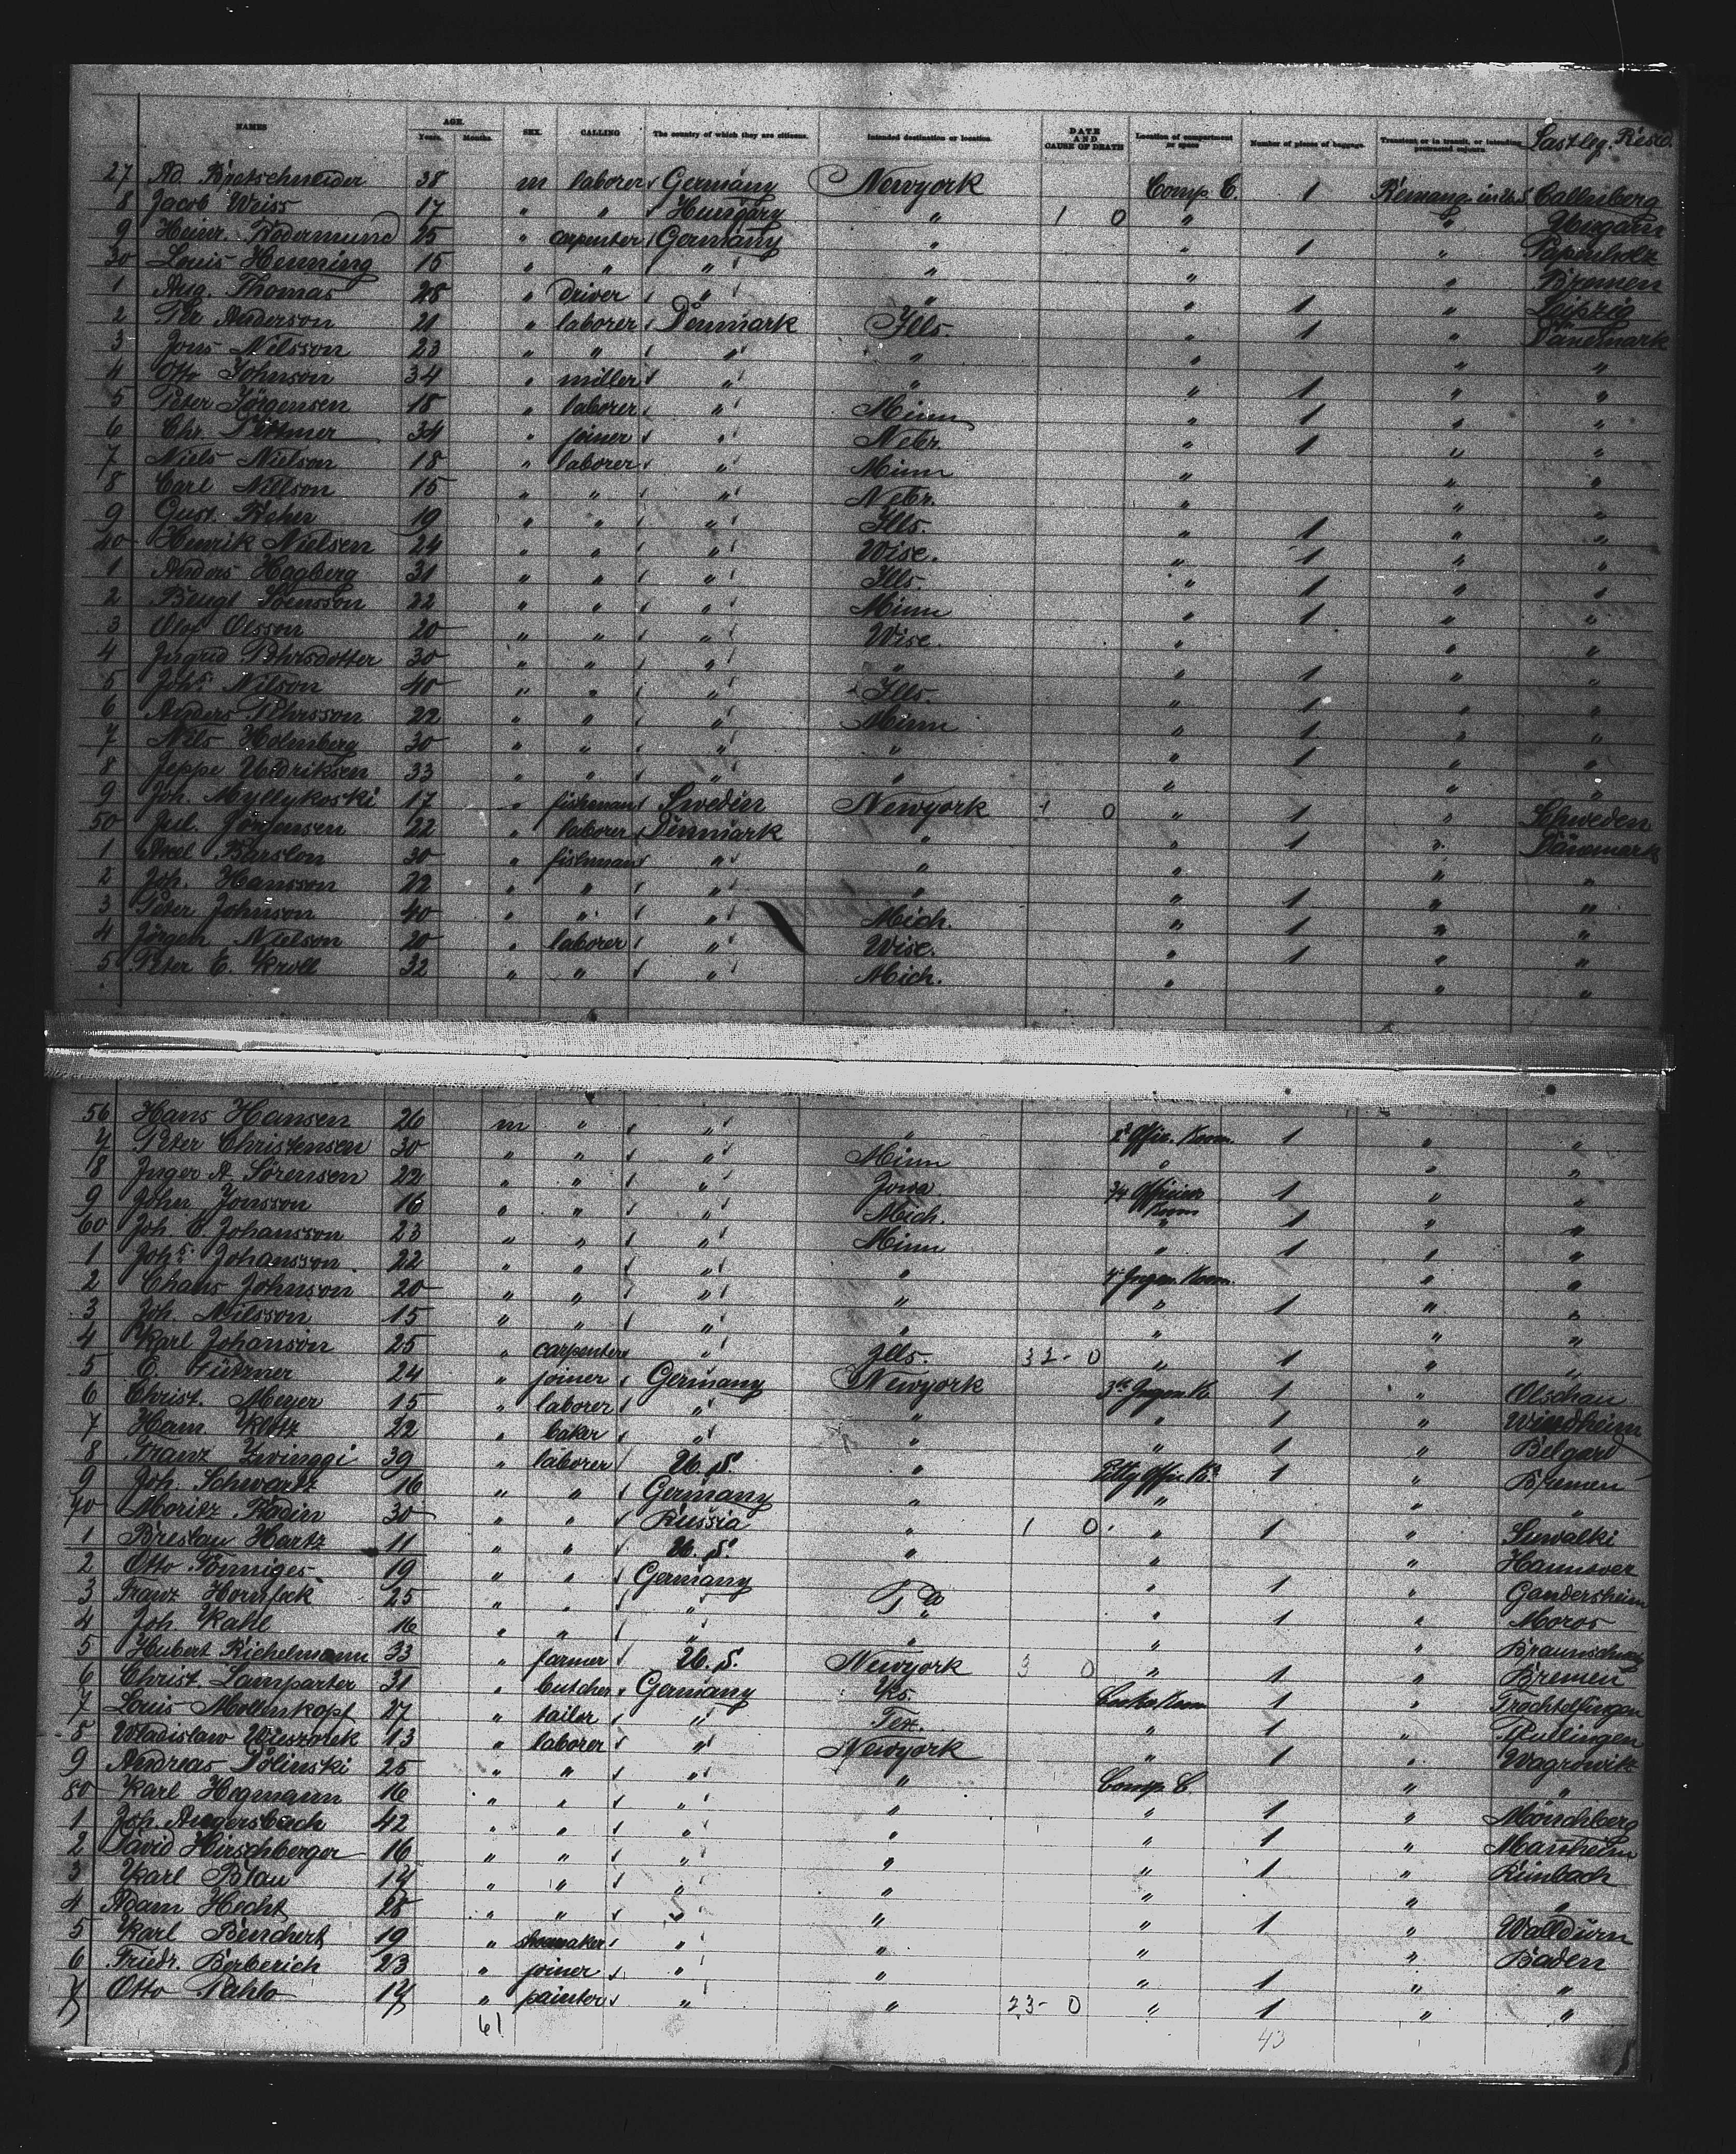 NAMES AGE. Years. Months. SEX. CALLING The country of which they are citizens. Intended destination or location. DATE AND CAUSE OF DEATH Location of compartment or space Number of pieces of baggage. Transient or in transit, or intending protracted sojourn Last leg. Resid.
27 Ad Bretschneider 38 m laborer Germany Newyork Comp. C. 1 Callnberg
8 Jacob Weiss 17 " " Hungary " 1 0 " " Ungarn
9 Heinr. 25 " carpenter Germany " " 1 " Papenholz
30 Louis Henning 15 " " " " " " Bremen
1 Aug. Thomas 28 " driver " " " 1 " Leipzig
2 Anderson 21 " laborer Denmark Ills. " 1 " Dänemark
3 Jons Nilsson 23 " " " " " " "
4 Otto Johnson 34 " miller " " " 1 " "
5 Peter Jörgensen 18 " laborer " Minn " 1 " "
6 Chr. 34 " joiner " Nebr. " 1 " "
7 Niels Nielson 18 " laborer " Minn " " "
8 Carl Nillson 15 " " " Nebr. " " "
9 Gust. 19 " " " Ills. " 1 " "
40 Henrik Nielsen 24 " " " Wisc. " 1 " "
1 Anders Hogberg 31 " " " Ills. " 1 " "
2 Bengt Svensson 22 " " " Minn " 1 " "
3 Olof Olsson 20 " " " Wisc. " " "
4 Ingrid Pehrsdotter 30 " " " " " 1 " "
5 Johs. Nilson 40 " " " Ills. " 1 " "
6 Anders Pehrsson 22 " " " Minn " 1 " "
7 Nils Holmberg 30 " " " " " 1 " "
8 Jeppe 33 " " " " " " "
9 Joh. Myllykoski 17 " fishman Sweden Newyork 1 0 " 1 " Schweden
50 Jul. 22 " laborer Denmark " " 1 " Dänemark
1 Axel 30 " fishman " " " " "
2 Joh. Hansson 22 " " " " " 1 " "
3 Peter Johnson 40 " " " Mich. " 1 " "
4 Jörgen Nielson 20 " laborer " Wisc. " 1 " "
5 Peter E. Kroll 32 " " " Mich. " " "
56 Hans Hansen 26 m " " " 2d Offic. Room 1 " "
7 Peter Christensen 30 " " " Minn " " "
8 Inger A Sörensen 22 " " " Iowa 3/4 Officier Room 1 " "
9 John Jonsson 16 " " " Mich. " 1 " "
60 Joh E Johansson 23 " " " Minn " 1 " "
1 Johs. Johansson 22 " " " " 4th Ingen. Room " "
2 Chans Johnson 20 " " " " " 1 " "
3 Joh. Nilsson 15 " " " " " " "
4 Karl Johanson 25 " carpenter " Ills. 32- 0 " 1 " "
5 E. 24 " joiner Germany Newyork 3th Ingen R. 1 " Olschau
6 Christ. Meyer 15 " laborer " " " 1 " Windheim
7 Ham Klotz 22 " baker " " " 1 " Belgard
8 Franz Zwinggi 39 " laborer U. S. " Petty Offic. R. 1 " Bremen
9 Joh. Schwartz 16 " " Germany " " " "
70 Moritz Radin 30 " " Russia " 1 0 " 1 " Suwalki
1 Breslau Hartz 11 " " U. S. " " " Hannover
2 Otto Tönniges 19 " " Germany " " 1 " Gandersheim
3 Franz 25 " " " Pa " 1 " Moros
4 Joh Kahl 16 " " " " " " Braunschweig
5 Hubert Richelmann 33 " farmer U. S. Newyork 3 0 " 1 " Bremen
6 Christ. Lamparter 31 " butcher Germany Ks. Cooks Room 1 " Trochtelfingen
7 Louis Mollenkopf 27 " tailor " Tex. " 1 " Pfullingen
8 Wladislaw 13 " laborer " Newyork " 1 " Wagrowitz
9 Andreas Dolinski 25 " " " " Comp C. " "
80 Karl Hegmann 16 " " " " " 1 " Mönchberg
1 Joh. Augersbach 42 " " " " " 1 " Manheim
2 David Hirschberger 16 " " " " " 1 " Rimbach
3 Karl Blau 17 " " " " " " "
4 Adam Hecht 28 " " " " " 1 " Walldürn
5 Karl 19 " shoemaker " " " " Baden
6 Friedr. Berberich 23 " joiner " " " 1 " "
7 Otto Pahlo 17 " painter " " 23- 0 " 1 " "
61 43